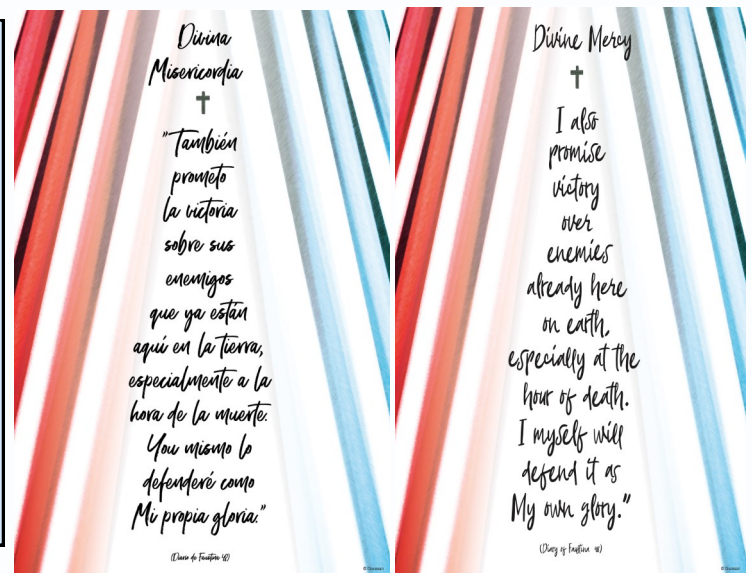 Divina
Misericordia
"También
prometo
la victoria
sobre sus
enemigos
que ya están
aquí en la tierra,
especialmente a la
hora de la muerte.
You mismo lo
defenderé como
Mi propia gloria."
(Diario de Faustina 48)
Divine Mercy
I also
promise
victory
over
enemies
already here
on earth,
especially at the
hour of death.
I myself will
defend it as
My own glory."
(Diary of Faustina 48)